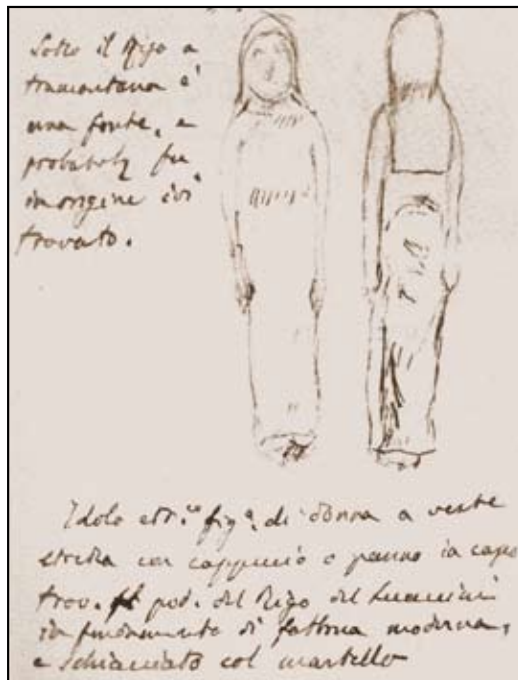 Sotto il Rigo a
tramontana è
una fonte, e
probately fu
in origine ivi
trovato.
Idolo etr.co fig.a di donna a veste
stretta con cappuccio o panno in capo
trov. pod. del Rigo del
in fondamento di fattoria moderna,
e schiacciato col martello